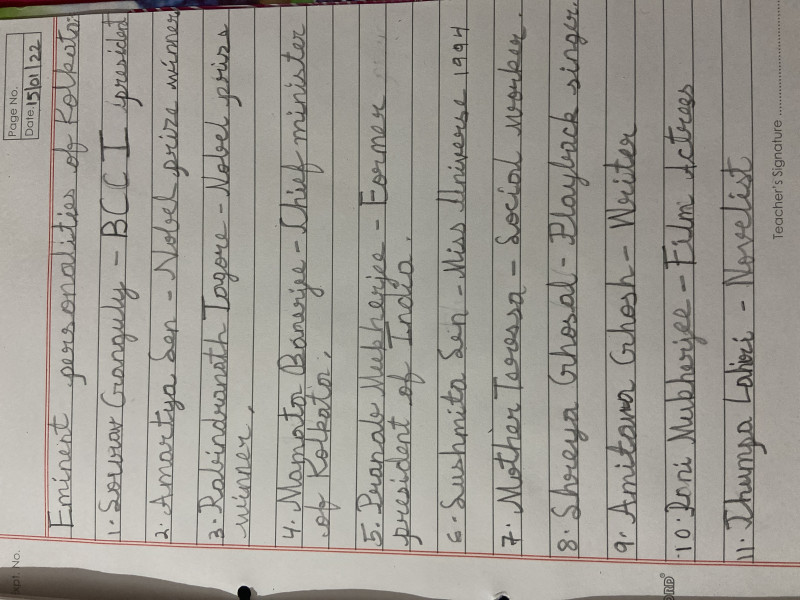 Page No.
Date: 15/01/22
Eminent personalities of Kolkata:
1. Sourav Ganguly - BCCI president
2. Amartya Sen - Nobel prize winner
3. Rabindranath Tagore - Nobel prize
winner.
4. Mamata Banerjee - Chief minister
of Kolkata.
5. Pranab Mukherjee - Former
president of India.
6. Sushmita Sen - Miss Universe 1994
7. Mother Teressa - Social worker.
8. Shreya Ghosal - Playback singer.
9. Amitava Ghosh - Writer
10. Rani Mukherjee - Film Actrees
11. Jhumpa Lahiri - Novelist
Teacher's Signature